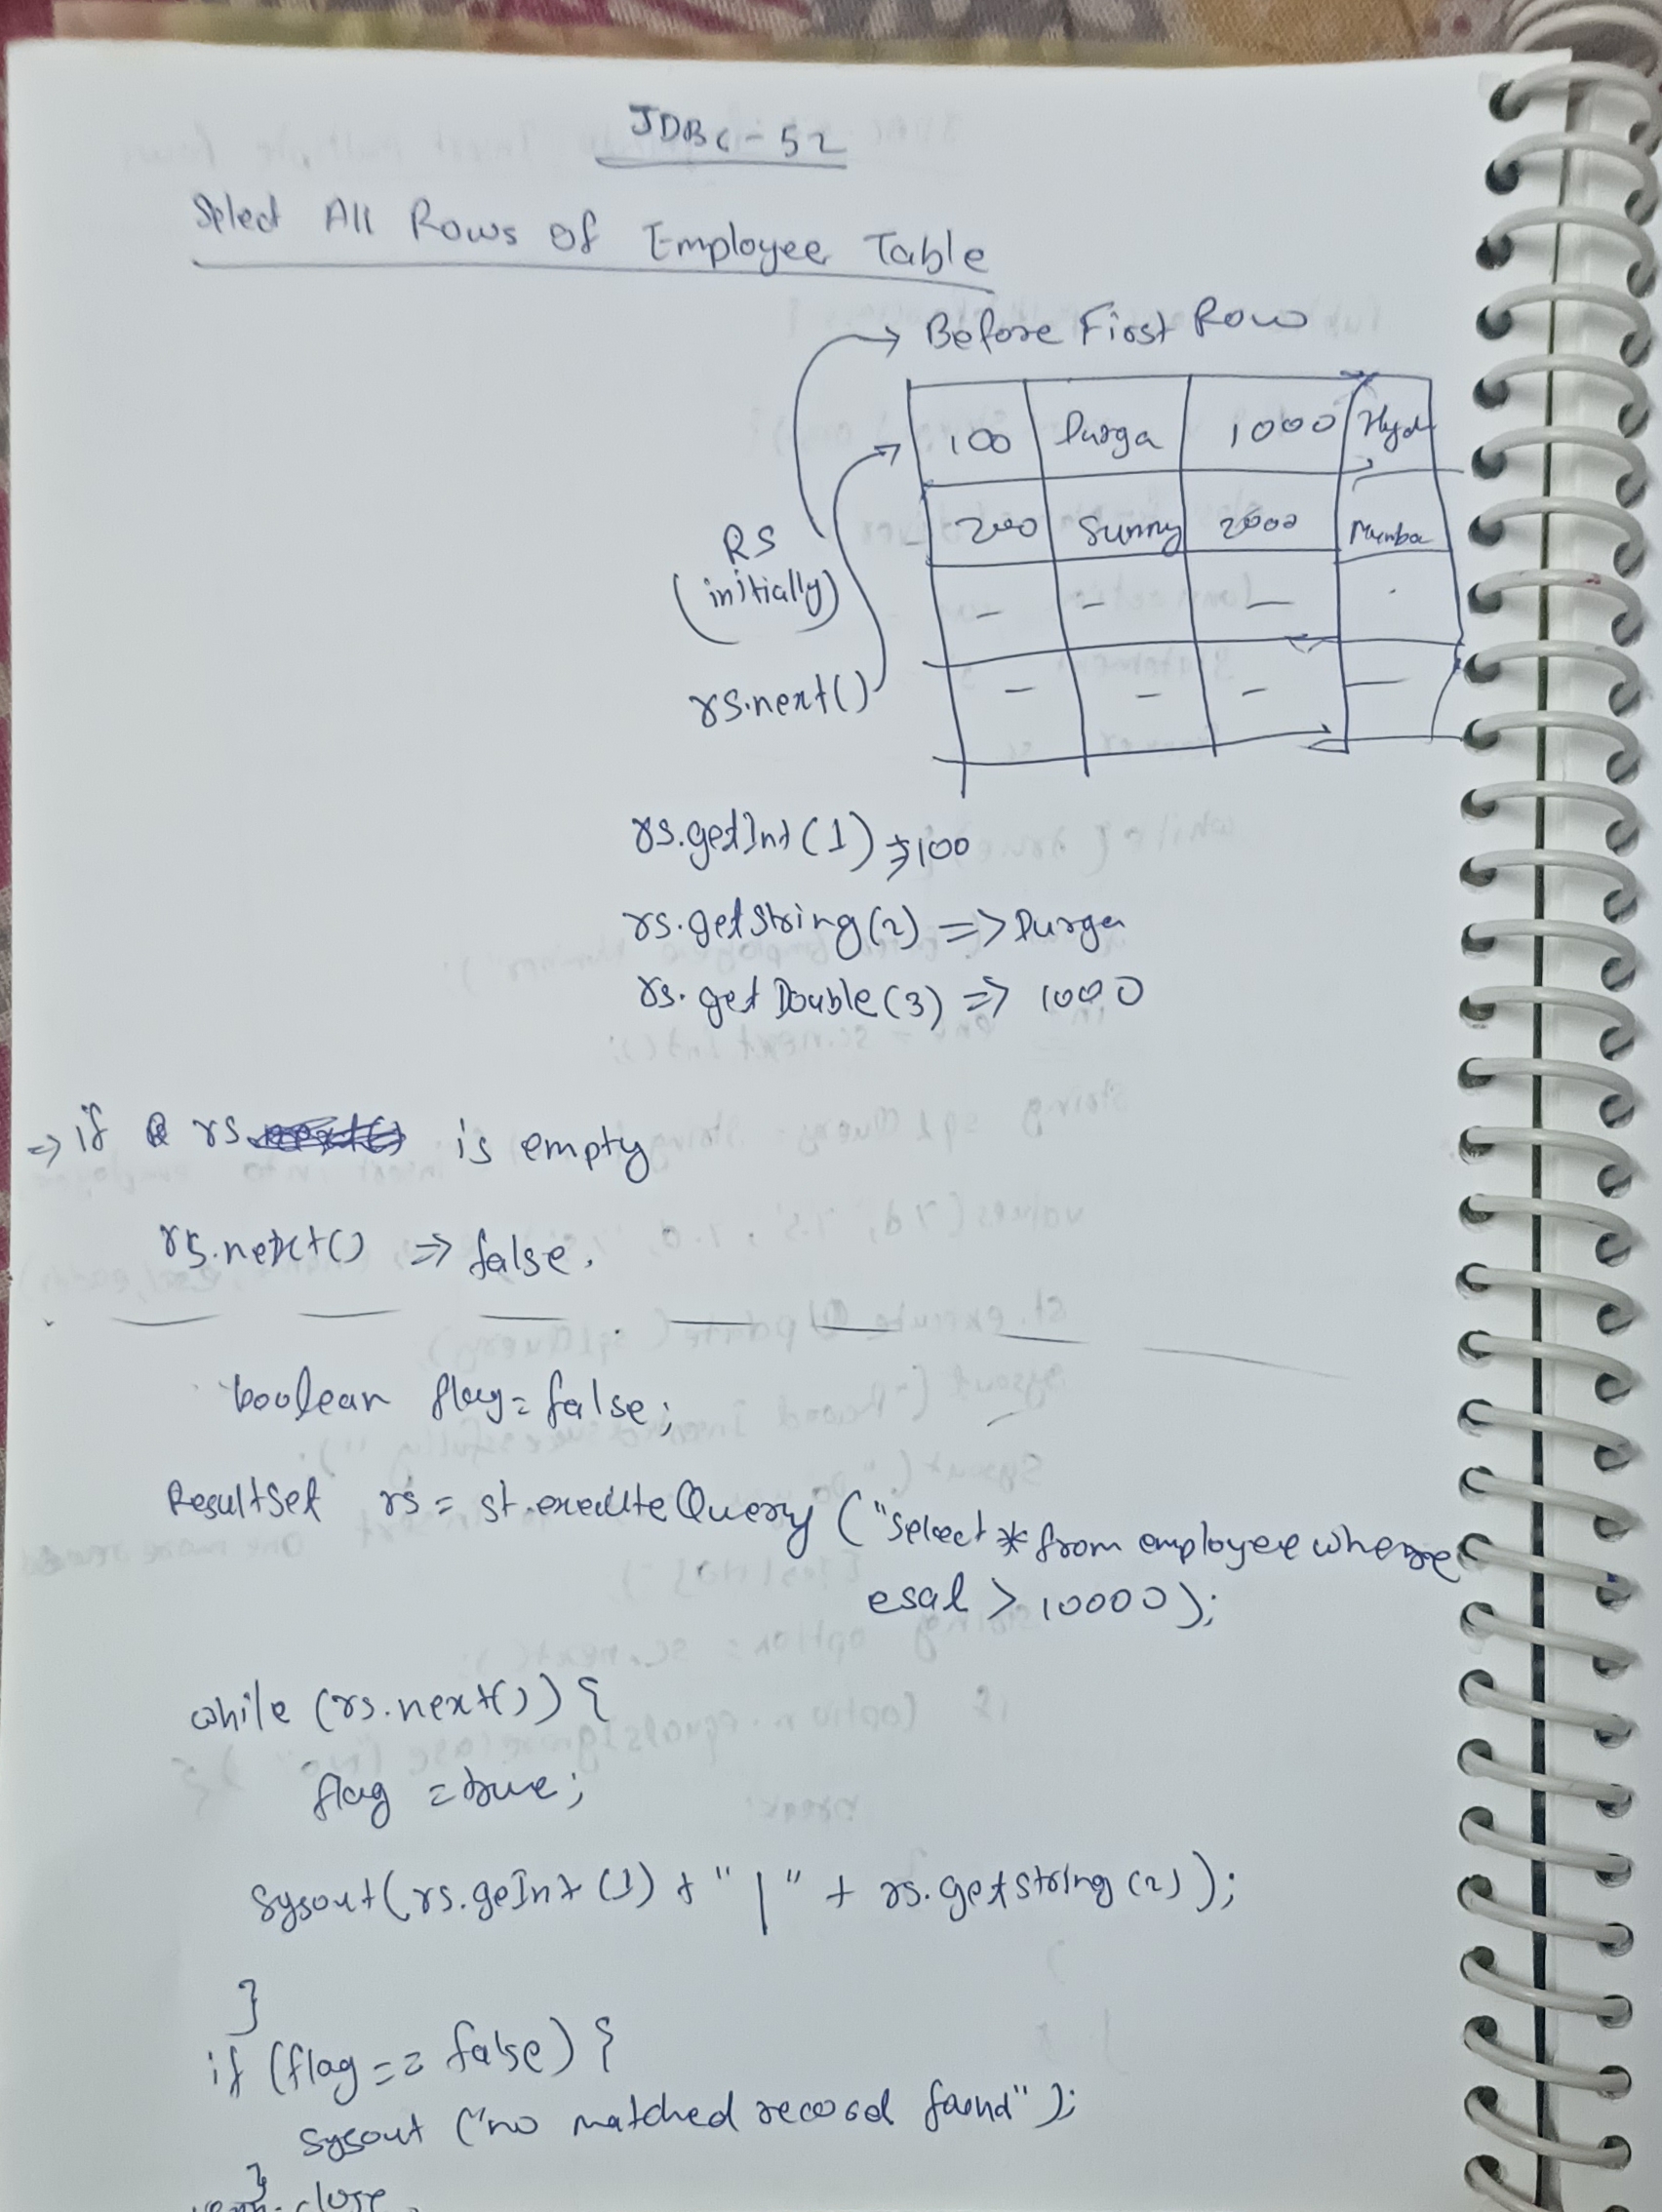 JDBC-52
Select All Rows of Employee Table
→ Before First Row
100 Durga 1000 Hyd
200 Sunny 2000 Mumba
- - - .
- - - -
RS
(initially)
rs.next()
rs.getInt(1) ⇒ 100
rs.getString(2) => Durga
rs.getDouble(3) => 1000
=> if rs is empty
rs.next() => false.
boolean flag = false;
ResultSet rs = st.executeQuery ("select * from employee where
esal > 10000);
while (rs.next()) {
flag = true;
Sysout(rs.geInt(1) + "|" + rs.getString(2));
}
if (flag == false) {
Sysout ("no matched record found");
}
close